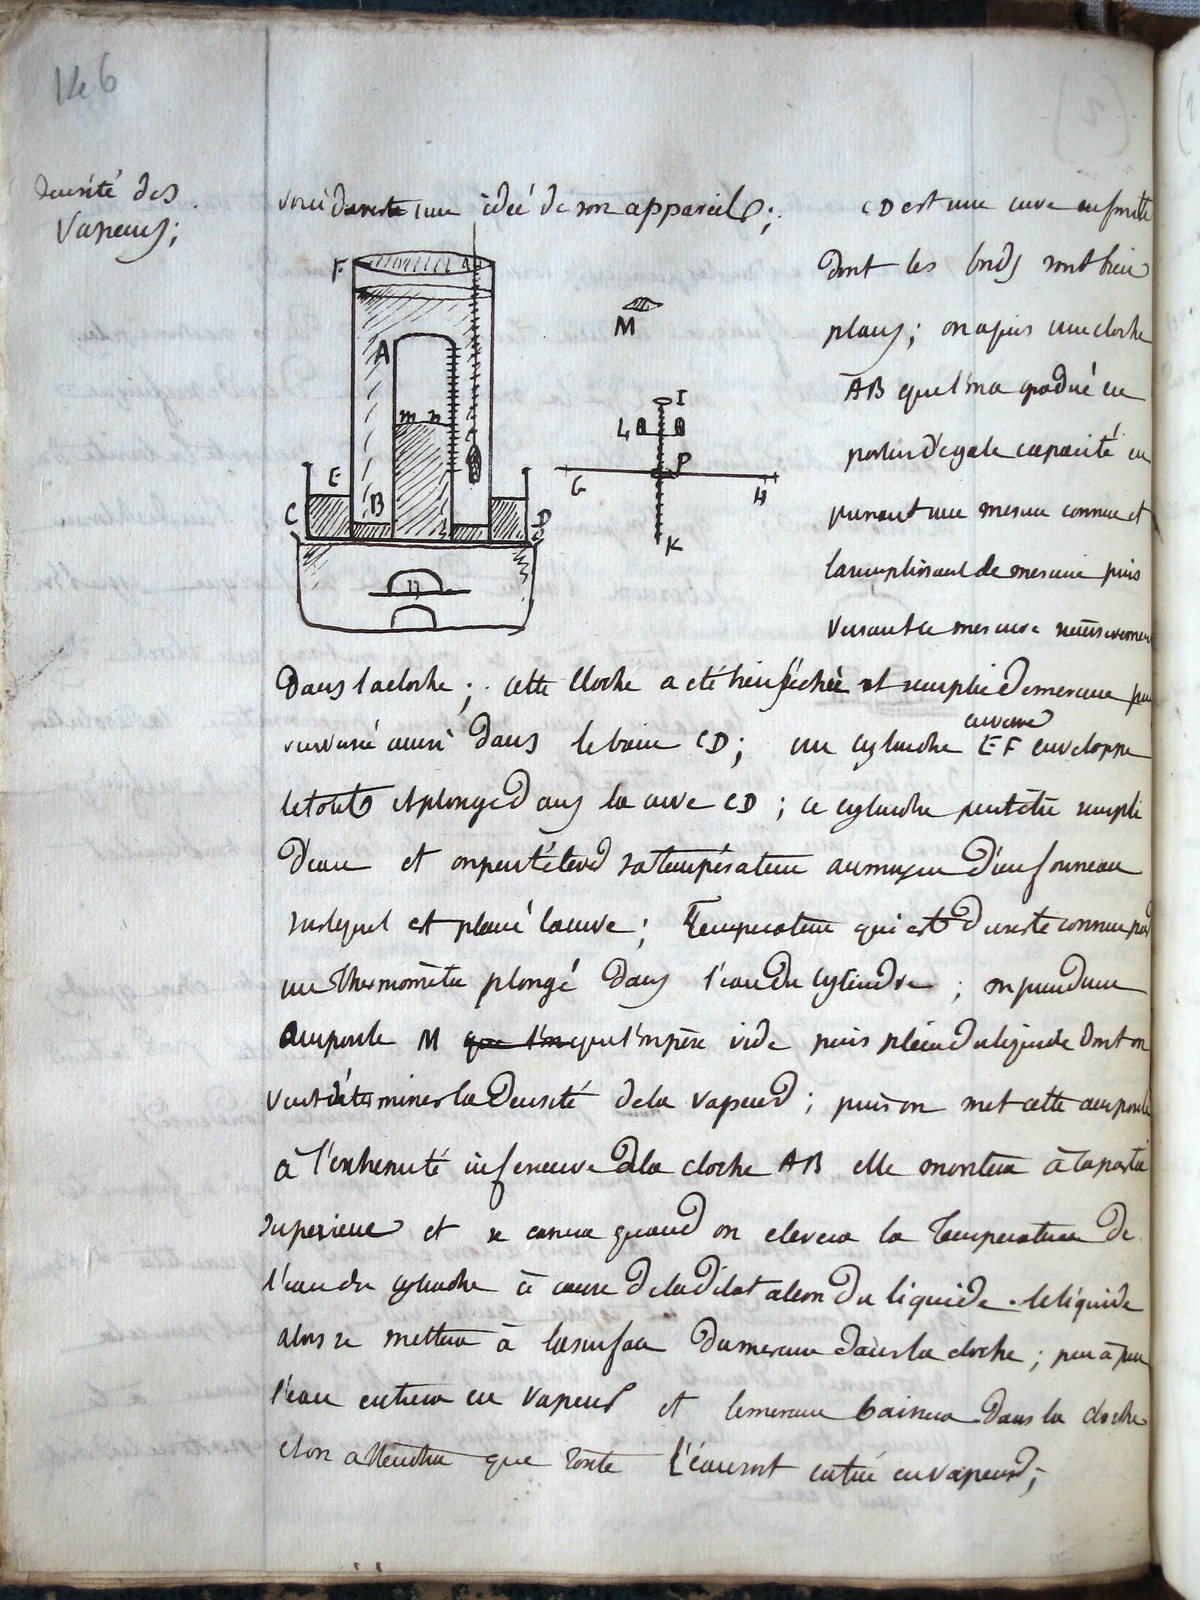 146
densité des
vapeurs;
voici du reste une idée de son appareil;
CD est une cuve en fonte
dont les bords sont bien
plans; on a pris une cloche
AB que l'on a gradué en
parties d'égale capacité en
prenant une mesure connue et
la remplissant de mercure puis
versant ce mercure successivement
F
A
m n
E
B
C
D
M
I
L
P
G
H
K
dans la cloche; cette cloche a été bien séchée et remplie de mercure puis
en verre
renversée aussi dans le bain CD; un cylindre EF enveloppe
le tout et plonge dans la cuve CD; ce cylindre peut être rempli
d'eau et on peut élever sa température au moyen d'un fourneau
sur lequel est placé la cuve; Température qui est du reste connue par
un Thermomètre plongé dans l'eau du cylindre; on prend une
ampoule M que l'on que l'on pèse vide puis plein du liquide dont on
veut déterminer la densité de la vapeur; puis on met cette ampoule
à l'extremité inferieure de la cloche AB elle montera à la partie
superieure et se cassera quand on elevera la Temperature de
l'eau du cylindre à cause de la dilatation du liquide. le liquide
alors se mettra à la surface du mercure dans la cloche; peu à peu
l'eau entrera en vapeur et le mercure baissera dans la cloche
et on attendra que toute l'eau soit entrée en vapeur;